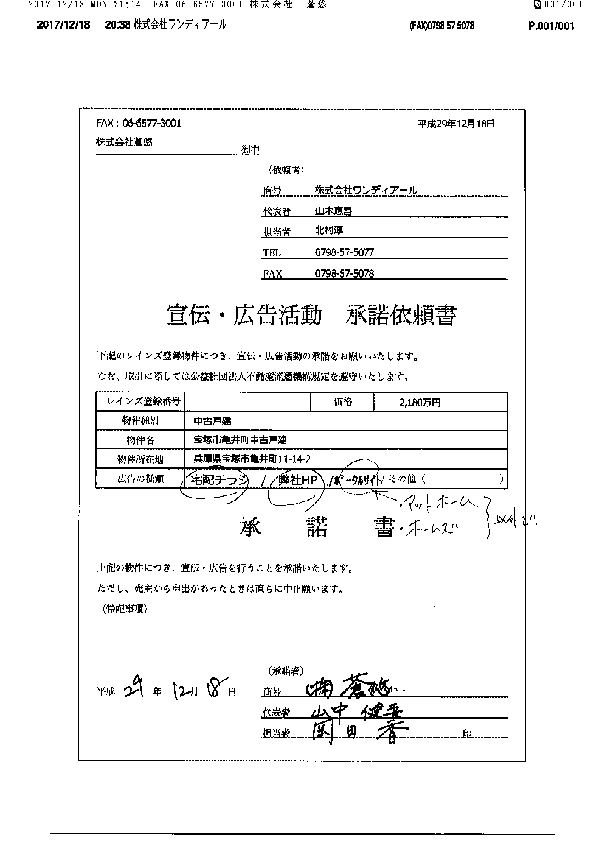 2017/12/18 20:38 株式会社ワンディアール (FAX)0798 57 5078 P.001/001
FAX：06-6577-3001 平成29年12月18日
株式会社蒼悠 御中
（依頼者）
商号 株式会社ワンディアール
代表者
担当者 北村淳
TEL 0798-57-5077
FAX 0798-57-5078
宣伝・広告活動 承諾依頼書
下記のレインズ登録物件につき、宣伝・広告活動の承諾をお願いいたします。
なお、取引に際しては公益社団法人不動産流通機構規定を遵守いたします。
レインズ登録番号 価格 2,180万円
物件種別 中古戸建
物件名 宝塚市亀井町中古戸建
物件所在地 兵庫県宝塚市亀井町11-14-2
広告の種類 宅配チラシ / 弊社HP / ポータルサイト / その他（ ）
・アットホーム
・ホームズ
承諾書
上記の物件につき、宣伝・広告を行うことを承諾いたします。
ただし、売主から申出があったときは直ちに中止願います。
（特記事項）
（承諾者）
平成 29 年 12月 18 日 商号 (株)蒼悠
代表者 山中 健吾
担当者 岡田 香 印